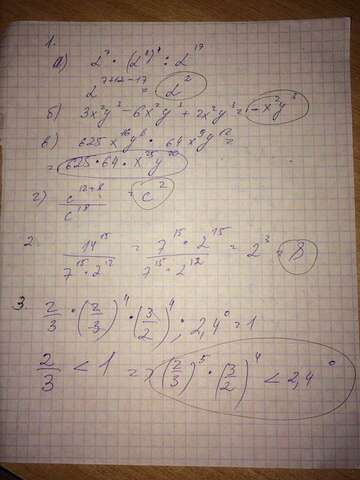 1.
а) α⁷ · (α³)⁴ : α¹⁷
α⁷⁺¹²⁻¹⁷ = α²
б) 3x²y³ - 6x²y³ + 2x²y³ = -x²y³
в) 625x¹⁶y⁸ · 64x⁹y¹² =
= 625 · 64 · x²⁵y²⁰
г) c¹²⁺⁸ / c¹⁸ = c²
2. 14¹⁵ / 7¹⁵ · 2¹² = 7¹⁵ · 2¹⁵ / 7¹⁵ · 2¹² = 2³ = 8
3. 2/3 · (2/3)⁴ · (3/2)⁴ ; 2,4⁰ = 1
2/3 < 1 => (2/3)⁵ · (3/2)⁴ < 2,4⁰